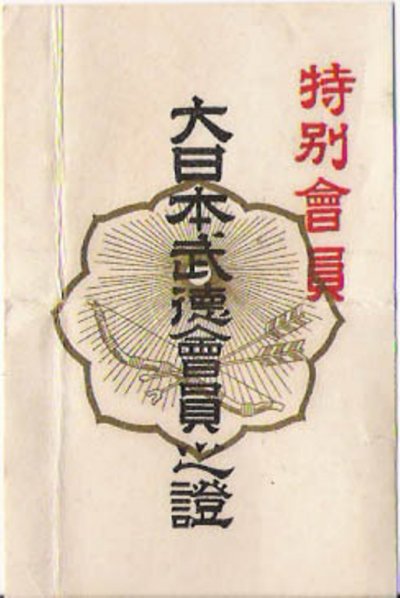 特別會員
大日本武德會會員之證